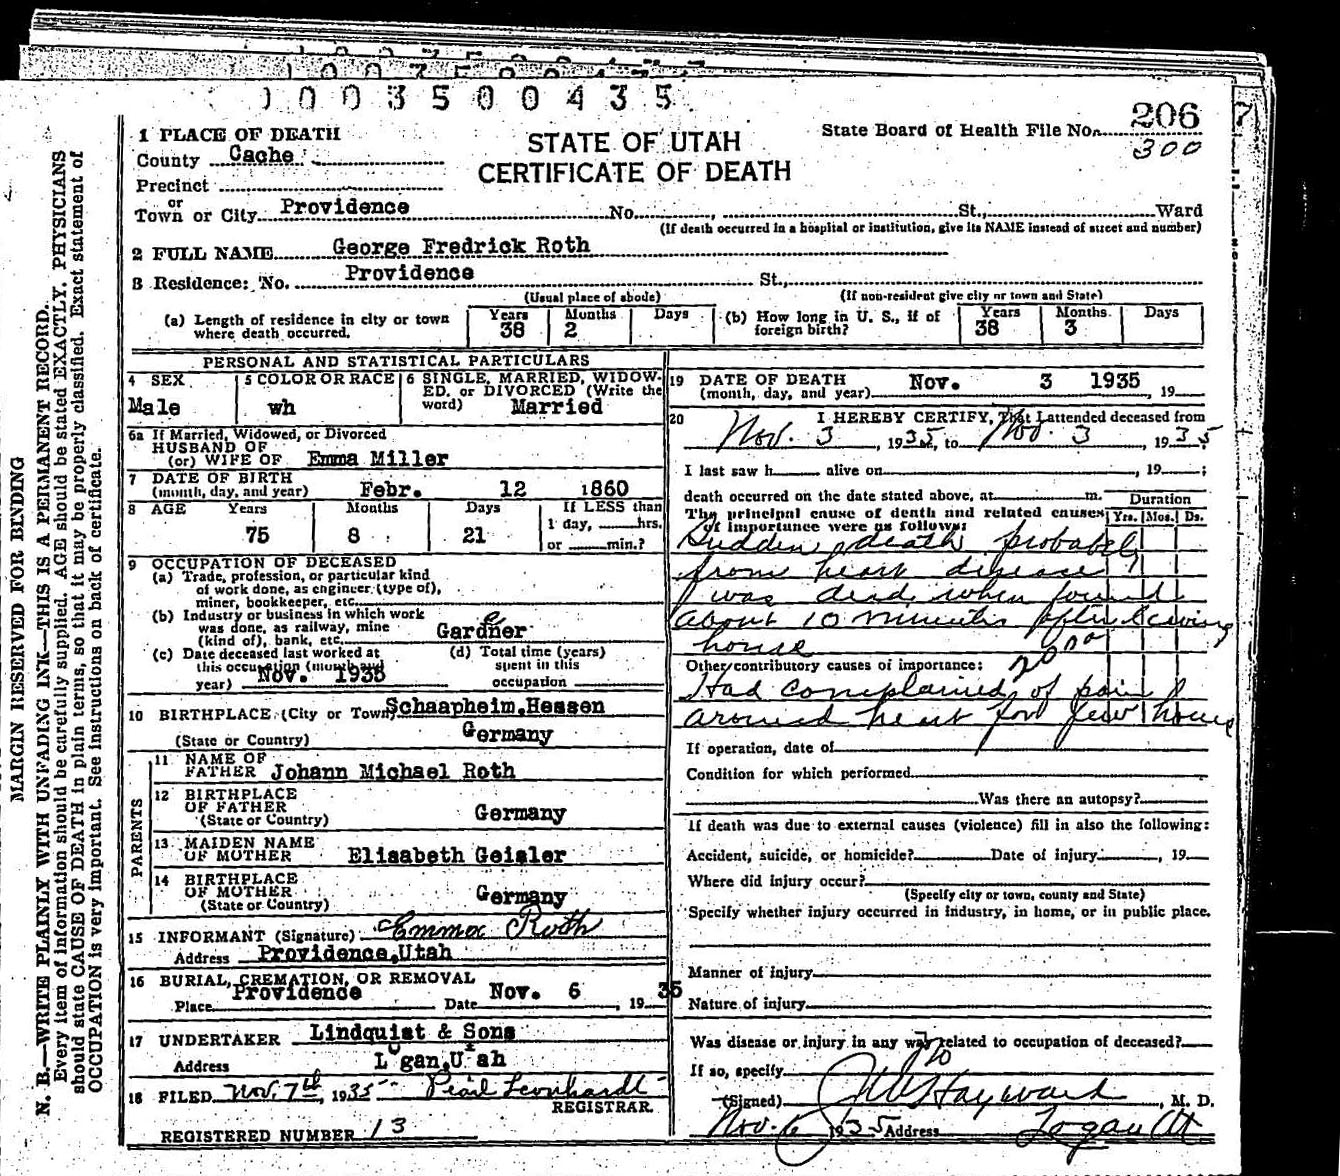 1003500435
STATE OF UTAH
CERTIFICATE OF DEATH
State Board of Health File No. 206
300
1 PLACE OF DEATH
County Cache
Precinct
or
Town or City Providence No. , St., Ward
(If death occurred in a hospital or institution, give its NAME instead of street and number)
2 FULL NAME George Fredrick Roth
3 Residence: No. Providence St.,
(Usual place of abode) (If non-resident give city or town and State)
(a) Length of residence in city or town where death occurred. Years 38 Months 2 Days
(b) How long in U. S., if of foreign birth? Years 38 Months 3 Days
PERSONAL AND STATISTICAL PARTICULARS
4 SEX Male
5 COLOR OR RACE wh
6 SINGLE, MARRIED, WIDOWED, or DIVORCED (Write the word) Married
6a If Married, Widowed, or Divorced
HUSBAND OF
(or) WIFE OF Emma Miller
7 DATE OF BIRTH
(month, day, and year) Febr. 12 1860
8 AGE Years 75 Months 8 Days 21 If LESS than
1 day, hrs.
or min.?
9 OCCUPATION OF DECEASED
(a) Trade, profession, or particular kind
of work done, as engineer (type of),
miner, bookkeeper, etc.
(b) Industry or business in which work
was done, as railway, mine
(kind of), bank, etc. Gardner
e
(c) Date deceased last worked at
this occupation (month and
year) Nov. 1935
(d) Total time (years)
spent in this
occupation
10 BIRTHPLACE (City or Town) Schaapheim, Hessen
(State or Country) Germany
PARENTS
11 NAME OF
FATHER Johann Michael Roth
12 BIRTHPLACE
OF FATHER
(State or Country) Germany
13 MAIDEN NAME
OF MOTHER Elisabeth Geisler
14 BIRTHPLACE
OF MOTHER
(State or Country) Germany
15 INFORMANT (Signature) Emma Roth
Address Providence, Utah
16 BURIAL, CREMATION, OR REMOVAL
Place Providence Date Nov. 6, 19 35
17 UNDERTAKER Lindquist & Sons
Address Logan, Utah
18 FILED Nov. 7th, 1935 Pearl Leonhardt
REGISTRAR.
REGISTERED NUMBER 13
19 DATE OF DEATH
(month, day, and year) Nov. 3 1935, 19
20 I HEREBY CERTIFY, That I attended deceased from
Nov. 3, 1935, to Nov. 3, 1935
I last saw h alive on , 19 ;
death occurred on the date stated above, at m.
The principal cause of death and related causes
of importance were as follows:
Duration
Yrs. Mos. Ds.
Sudden death probably
from heart disease
was dead when found
about 10 minutes after leaving
house
Other contributory causes of importance:
Had complained of pain
around heart for few hours
If operation, date of
Condition for which performed
Was there an autopsy?
If death was due to external causes (violence) fill in also the following:
Accident, suicide, or homicide? Date of injury , 19
Where did injury occur?
(Specify city or town, county and State)
Specify whether injury occurred in industry, in home, or in public place.
Manner of injury
Nature of injury
Was disease or injury in any way related to occupation of deceased?
If so, specify No
(Signed) J W Hayward, M. D.
Nov. 6 1935 Address Logan Ut
MARGIN RESERVED FOR BINDING
N. B.—WRITE PLAINLY WITH UNFADING INK—THIS IS A PERMANENT RECORD.
Every item of information should be carefully supplied. AGE should be stated EXACTLY. PHYSICIANS
should state CAUSE OF DEATH in plain terms, so that it may be properly classified. Exact statement of
OCCUPATION is very important. See instructions on back of certificate.
7